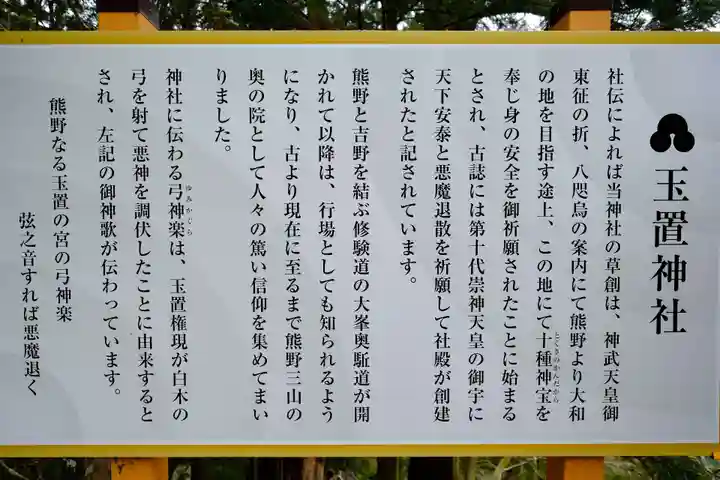 玉置神社
社伝によれば当神社の草創は、神武天皇御
東征の折、八咫烏の案内にて熊野より大和
の地を目指す途上、この地にて十種神宝を
とくさのかんだから
奉じ身の安全を御祈願されたことに始まる
とされ、古誌には第十代崇神天皇の御宇に
天下安泰と悪魔退散を祈願して社殿が創建
されたと記されています。
熊野と吉野を結ぶ修験道の大峯奥駈道が開
かれて以降は、行場としても知られるよう
になり、古より現在に至るまで熊野三山の
奥の院として人々の篤い信仰を集めてまい
りました。
神社に伝わる弓神楽は、玉置権現が白木の
ゆみかぐら
弓を射て悪神を調伏したことに由来すると
され、左記の御神歌が伝わっています。
熊野なる玉置の宮の弓神楽
弦之音すれば悪魔退く